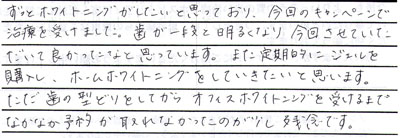 ずっとホワイトニングがしたいと思っており、今回のキャンペーンで
治療を受けました。歯が一段と明るくなり今回させていた
だいて良かったなと思っています。また定期的にジェルを
購入し、ホームホワイトニングをしていきたいと思います。
ただ歯の型どりをしてからオフィスホワイトニングを受けるまで
なかなか予約が取れなかったのが少し残念です。